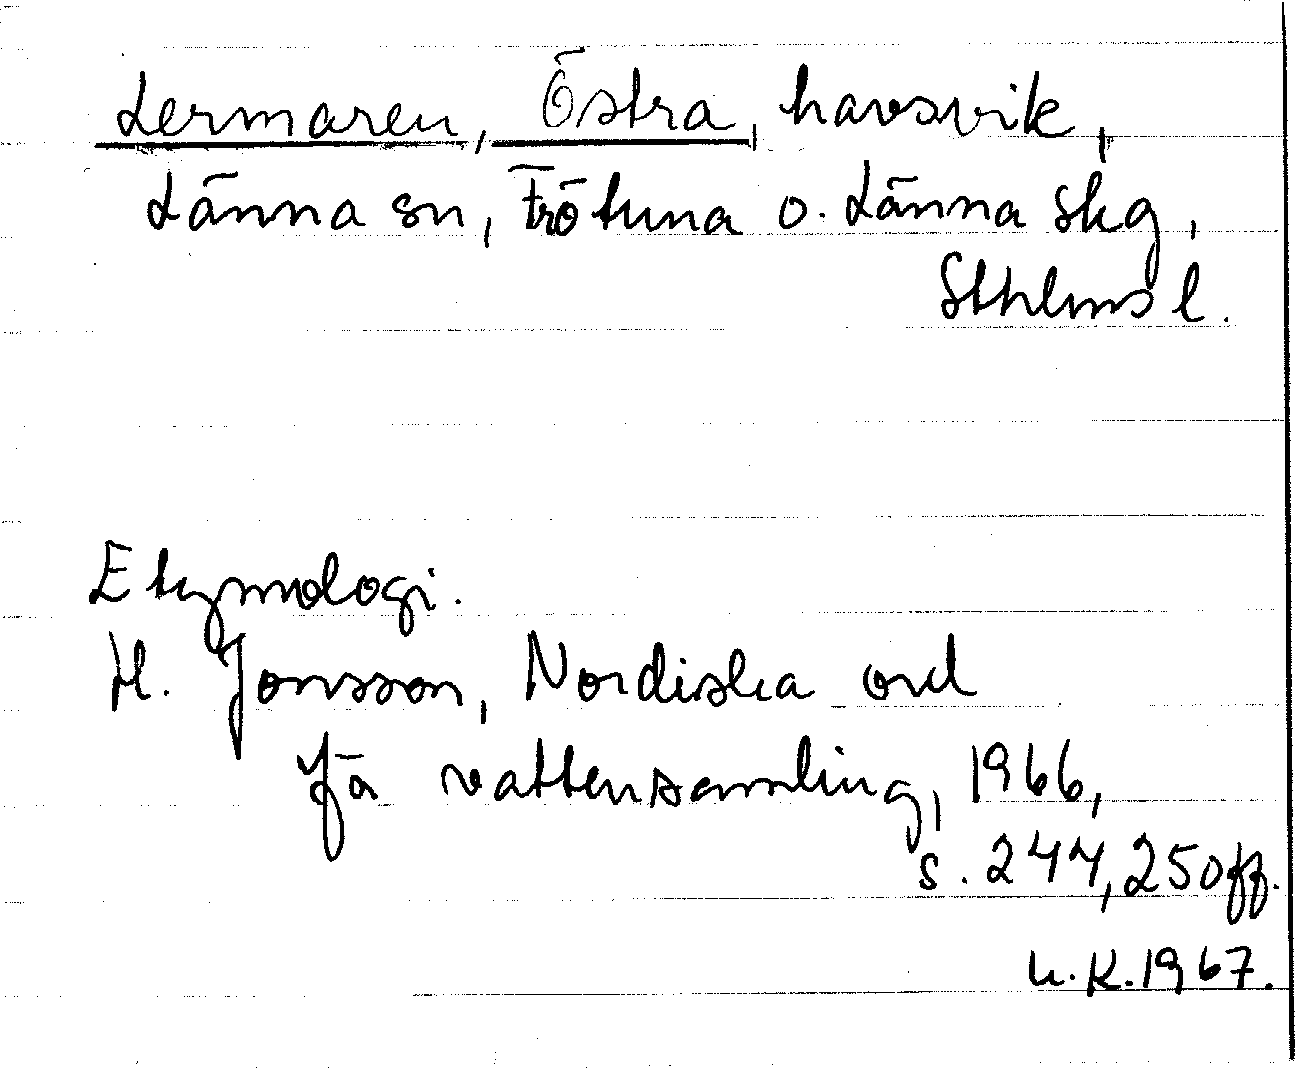 Lermaren, Östra, havsvik,
Länna sn, Frötuna o. Länna skg,
Sthlms l.
Etymologi.
H. Jonsson, Nordiska ord
för vattensamling, 1966,
s. 244, 250ff.
U.K. 1967.